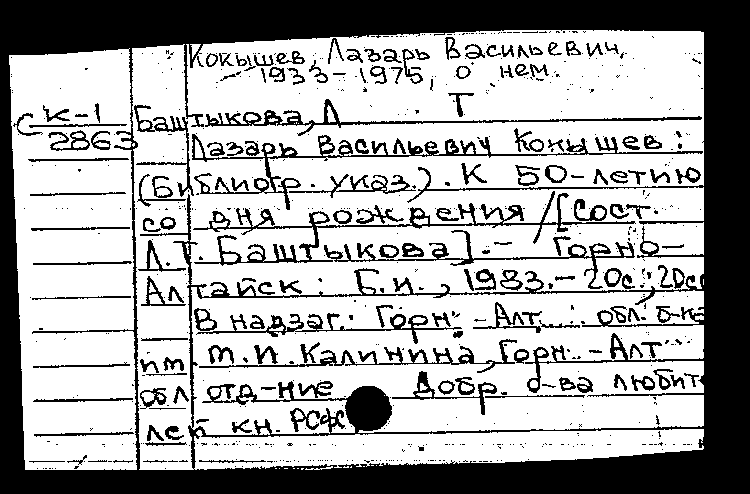 Кокышев, Лазарь Васильевич,
1933-1975, о нем.
С К-1
2863
Баштыкова, Л Т
Лазарь Васильевич Кокышев:
(Библиогр. указ.). К 50-летию
со дня рождения / [Сост.
Л.Т. Баштыкова].- Горно-
Алтайск: Б.и., 1983.- 20с.; 20см
В надзаг.: Горн.-Алт. обл. б-ка
им. М.И. Калинина, Горн.-Алт
обл отд-ние Добр. о-ва любите
лей кн. РСФС